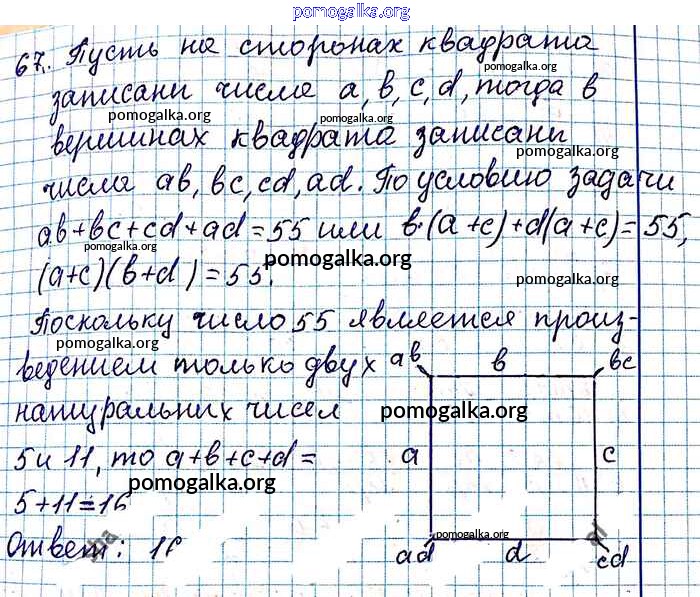 pomogalka.org
67. Пусть на сторонах квадрата
pomogalka.org
записани числа a, b, c, d, тогда в
pomogalka.org
вершинах квадрата записани
pomogalka.org
числа ab, bc, cd, ad. По условию задачи
ab+bc+cd+ad=55 или b·(a+c)+d(a+c)=55,
pomogalka.org
pomogalka.org
(a+c)(b+d)=55.
pomogalka.org
Поскольку число 55 является произ-
pomogalka.org
ведением только двух
ab b bc
натуральних чисел
pomogalka.org
5 и 11, то a+b+c+d=
a c
pomogalka.org
5+11=16
Ответ: 16
pomogalka.org
ad d cd